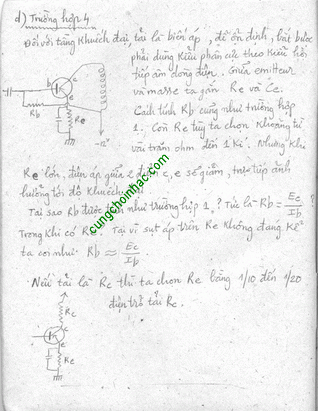 d) Trường hợp 4
Đối với tầng khuếch đại, tải là biến áp, để ổn định, bắt buộc
phải dùng kiểu phân cực theo kiểu hồi
tiếp âm dòng điện. Giữa emitteur
và masse ta gắn Re và Ce.
Cách tính Rb cũng như trường hợp
1. Còn Re tùy ta chọn khoảng từ
vài trăm ohm đến 1K. Nhưng khi
b
c
e
Rb
Re
-12v
Re lớn, điện áp giữa 2 điểm c, e sẽ giảm, trực tiếp ảnh
hưởng tới độ khuếch
Tại sao Rb được tính như trường hợp 1? Tức là Rb = Ec/Ib ?
Trong khi có Re. Tại vì sụt áp trên Re không đáng kể
ta coi như Rb ≈ Ec/Ib
Nếu tải là Rc thì ta chọn Re bằng 1/10 đến 1/20
điện trở tải Rc.
Rc
c
e
Re
cungchoinhac.com